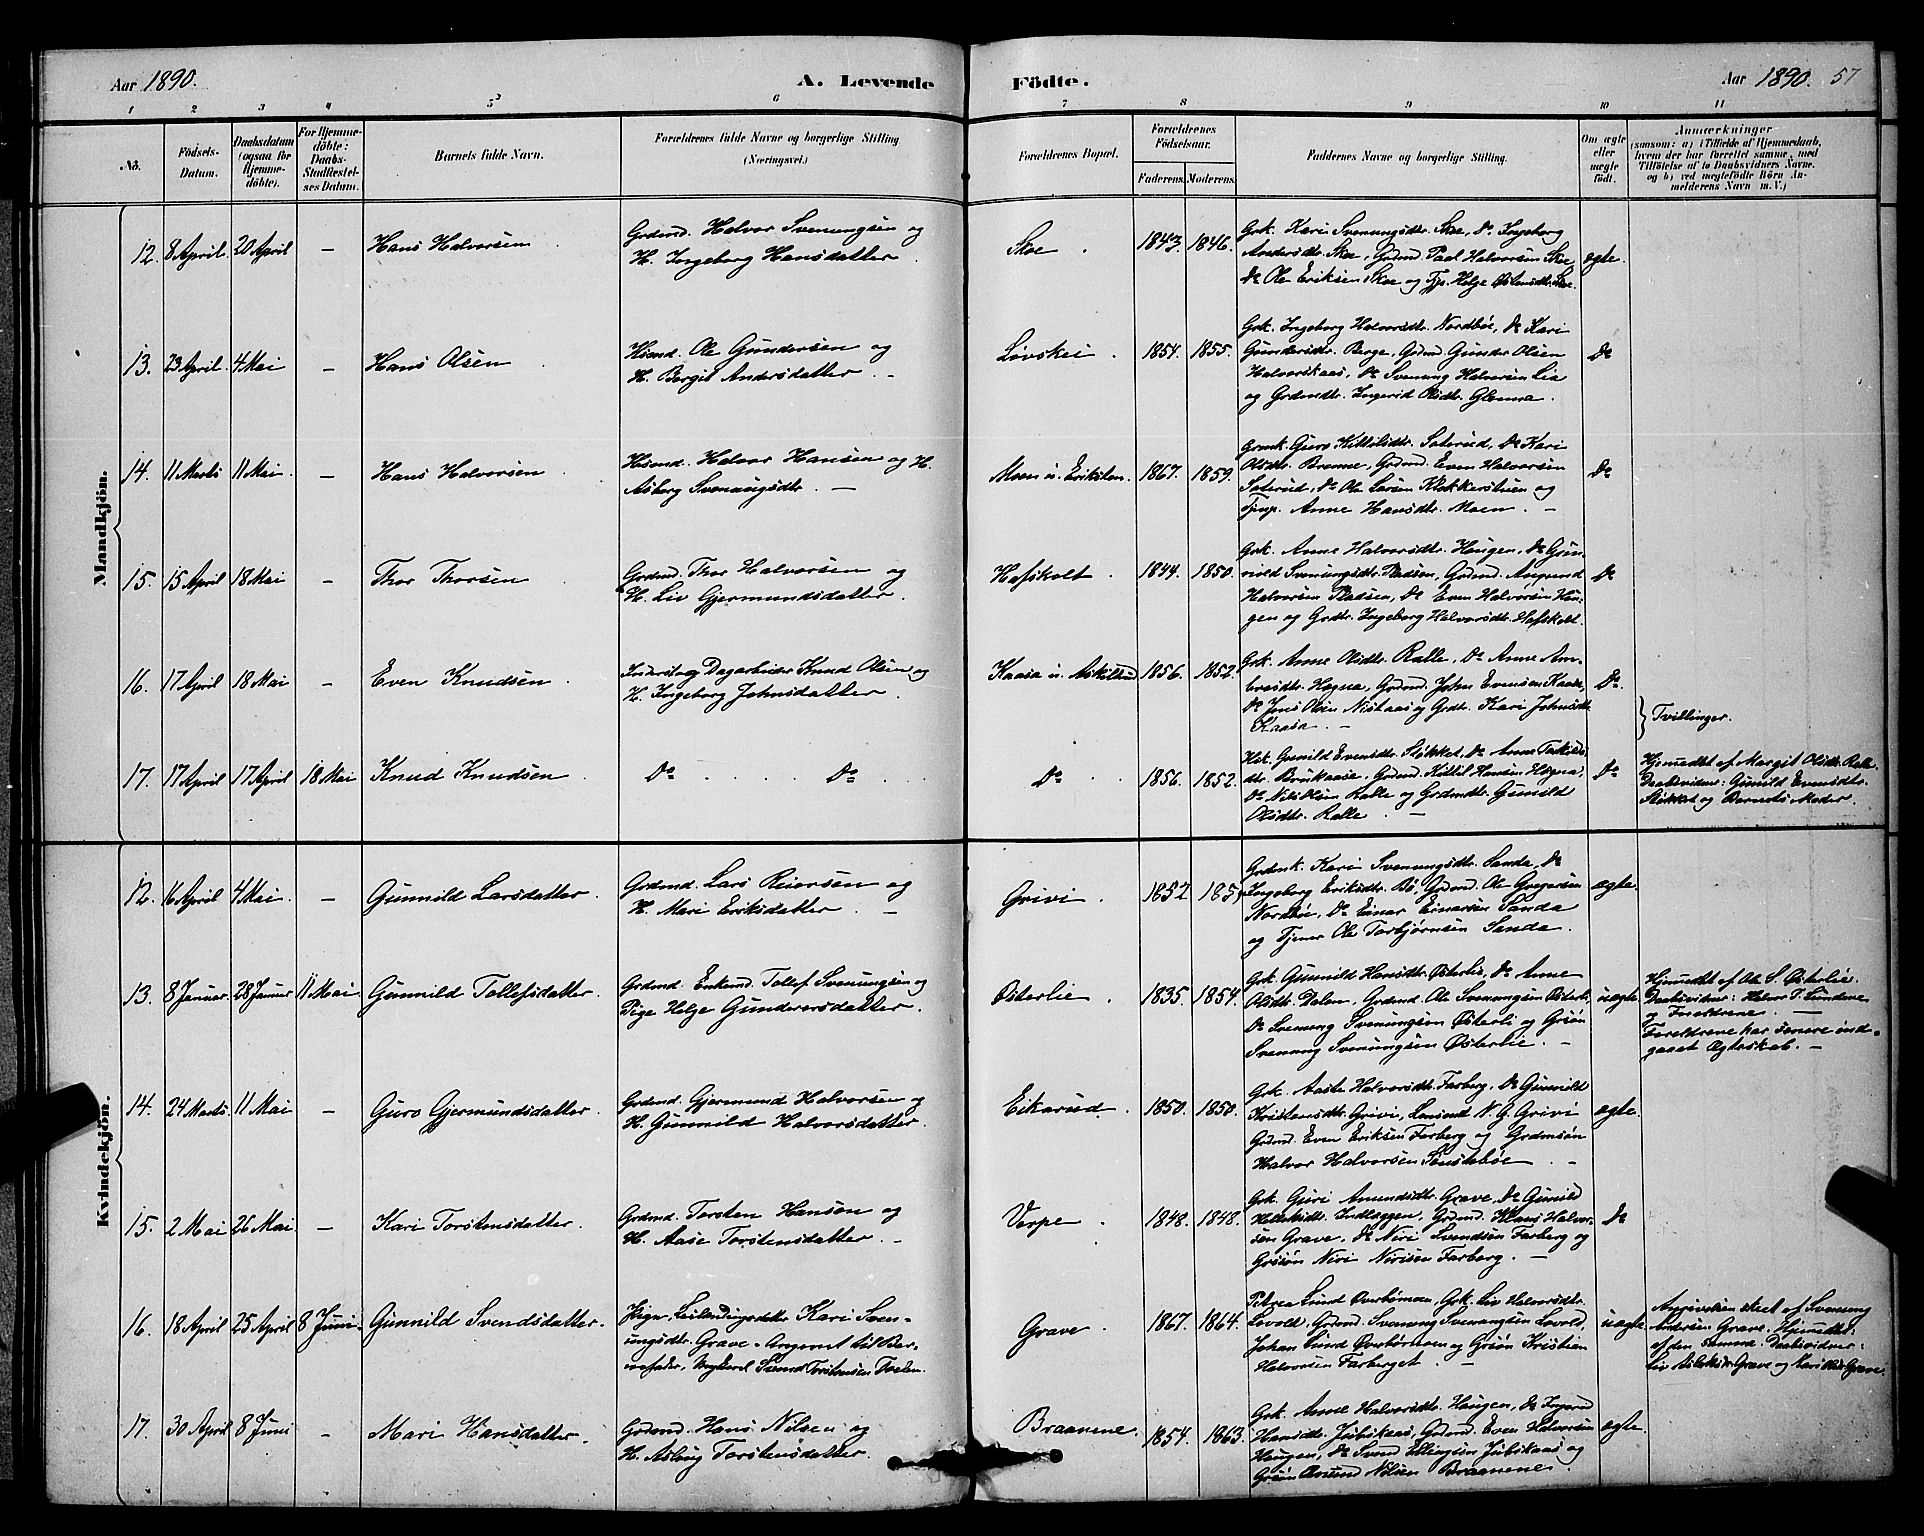 Aar 1890. A. Levende Födte. Aar 1890. 57
1 2 3 4 5 6 7 8 9 10 11
No.
Födsels-Datum.
Daabsdatum (ogsaa for Hjemme-döbte).
For Hjemme-döbte: Daabs-Stadfæstel-ses Datum.
Barnets fulde Navn.
Forældrenes fulde Navne og borgerlige Stilling (Næringsvei.)
Forældrenes Bopæl.
Forældrenes Födselsaar.
Faderens. Moderens.
Faddernes Navne og borgerlige Stilling.
Om ægte eller uægte födt.
Anmærkninger
(saasom: a) i Tilfælde af Hjemmedaab,
hvem der har forrettet samme, med
Tilföielse af to Daabsvidners Navne.
og b) ved uægtefödte Börn An-
melderens Navn m. V.)
Mandkjön.
12. 8 April. 20 April – Hans Halvorsen
Grdmd. Halvor Svenungsen og
H. Ingeborg Hansdatter.
Skoe. 1843. 1846.
Grk. Kari Svenungsdtr. Skoe, Do Ingeborg
Andersdtr. Skoe, Grdmd. Paal Halvorsen Skoe
Do Ole Eriksen Skoe og Tjp. Helge Østensdtr. Skoe.
ægte.
13. 23 April. 4 Mai – Hans Olsen
Husmd. Ole Gundersen og
H. Bergit Andersdatter. –
Løvskei. 1854. 1855.
Grk. Ingeborg Halvorsdtr. Nordbøe, Do Kari
Gundersdtr. Berge, Grdmd. Gunder Olsen
Halvorskaas, Do Svenung Halvorsen Lia
og Grdmdtr. Ingerid Olsdtr. Glenna.
Do
14. 11 Marts 11 Mai. – Hans Halvorsen
Husmd. Halvor Hansen og H.
Asberg Svenungsdtr. –
Moen u. Erikstein. 1867. 1859.
Grmk. Guro Kittilsdtr. Saterud, Do Kari
Olsdtr. Brenne, Grdmd. Even Halvorsen
Saterud, Do Ole Larsen Klokkerstuen og
Tjnp. Anne Hansdtr. Moen. –
Do
15. 15 April 18 Mai – Thor Thorsen
Grdmd. Thor Halvorsen og
H. Liv Gjermundsdatter.
Hafskolt. 1844. 1850.
Grk. Anne Halvorsdtr. Haugen, Do Gun-
vild Svenungsdtr. Pladsen, Grdmd. Amund
Halvorsen Pladsen, Do Even Halvorsen Hau-
gen og Grdtr. Ingeborg Halvorsdtr. Hafskolt.
Do
16. 17 April 18 Mai – Even Knudsen
Inderst og Dagarbeider Knud Olsen og
H. Ingeborg Johnsdatter.
Kaasa u. Askildsd 1856. 1852.
Grk. Anne Olsdtr. Ralle, Do Anne Am-
Hagna, Grdmd. John Evensen Kaasa,
Do Jens Olsen Nisikaas og Grdtr. Kari Johnsdtr.
Kaasa. –
Do.
} Tvillinger.
17. 17 April 17 April 18 Mai Knud Knudsen
Do Do
Do 1856. 1852.
Hsk. Gunild Evensdtr. Stökket, Do Anne Tarkilds-
dtr. Brukaasa, Grdmd. Kittil Hansen Hagna,
Do Nils Olsen Ralle og Grdmdtr. Gunild
Olsdtr. Ralle. –
Do
Hjemmedöbt af Margit Olsdtr. Ralle.
Daabsvidner: Gunild Evensdtr.
Stökket og Barnets Moder.
Kvindekjön.
12. 6 April 4 Mai. – Gunnild Larsdatter.
Grdmd. Lars Reiersen og
H. Mari Eriksdatter. –
Grivi. 1852 185
Grdmk. Kari Svenungsdtr. Sanda, Do
Ingeborg Eriksdtr. Bö, Grdmd. Ole Gregersen
Nordböe, Do Einar Einarsen Sanda
og Tjener Ole Torbjørnsen Sanda.
ægte.
13. 8 Januar. 28 Januar 11 Mai. Gunnild Tollefsdatter.
Grdmd. Enkemd. Tollef Svenungsen og
Pige Helge Gundersdatter.
Østerlie. 1835. 1854.
Grk. Gunnild Hansdtr. Østerlie, Do Anne
Olsdtr. Dalen, Grdmd. Ole Svenungsen Østerli,
Do Svenung Svenungsen Østerli og Grsøn
Svenung Svenungsen Østerlie. –
uægte
Hjemmdbt af Ole S. Østerlie.
Daabsvidner: Halvor T. Sundene
og Forældrene. –
Forældrene har senere ind-
gaaet Ægteskab. –
14. 24 Marts 11 Mai – Guro Gjermundsdatter.
Grdmd. Gjermund Halvorsen og
H. Gunnild Halvorsdatter.
Eikarud. 1850. 1850.
Grk. Aaste Halvorsdtr. Farberg, Do Gunnild
Kristensdtr. Grivi, Lensmd N. G. Grivi
Grdmd. Even Eriksen Farberg og Grdmsøn
Halvor Halvorsen Sønstebøe. –
ægte.
15. 2 Mai 26 Mai – Kari Torstensdatter.
Grdmd. Torsten Hansen og
H. Aase Torstensdatter. –
Verpe. 1848. 1848.
Grk. Guri Amundsdtr. Grave, Do Gunild
Indlæggen, Grdmd. Hans Halvor-
sen Grave, Do Niri Svendsen Farberg og
Grsøn Niri Nirisen Farberg. –
Do
16. 18 April 25 April 8 Juni – Gunnild Svendsdatter.
Pige, Leilændingsdatter Kari Sven-
ungsdtr. Grave – Angivet til Bar-
nefader, Ungkarl Svend Torstensen
Grave. 1867. 1864.
Petrea Lund Overbømoen, Grk. Liv Halvorsdtr.
Lovold, Grdmd. Svenung Svenungsen Lovold,
Johan Lund Overbømoen og Grsøn Kristian
Halvorsen Farberget. –
uægte
Angivelsen skeet af Svenung
Andersen Grave. Hjemmedbt:
af den Samme. Daabsvidner:
Liv Aslaksdtr. Grave og Kari Olsdtr. Grave.
17. 30 April 8 Juni – Mari Hansdatter.
Grdmd. Hans Nilsen og
H. Aslaug Torstensdatter.
Braanene. 1854. 1863.
Grk. Anne Halvorsdtr. Haugen, Do Ingerid
Hansdtr. Jubskaas, Grdmd. Even Halvorsen
Haugen, Do Svend Ellingsen Jubskaas og
Grsøn Nilsen Braanene.
ægte.